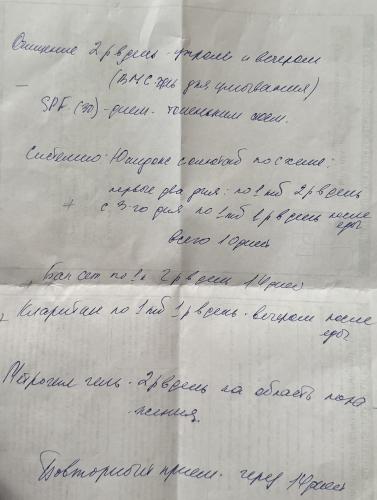 Очищение 2 р в день - утром и вечером
(ВМС-гель для умывания)
SPF (30) - днем. тоненьким слоем.
Системно: Юнидокс солютаб по схеме:
первые два дня: по 1 тб 2 р в день
с 3-го дня по 1 тб 1 р в день после
еды
всего 10 дней
Бак сет по 1к 2 р в день 14 дней
Кларитин по 1 тб 1 р в день. вечером после
еды
Метрогил гель - 2 р в день на область пора-
жения.
Повторный прием - через 14 дней